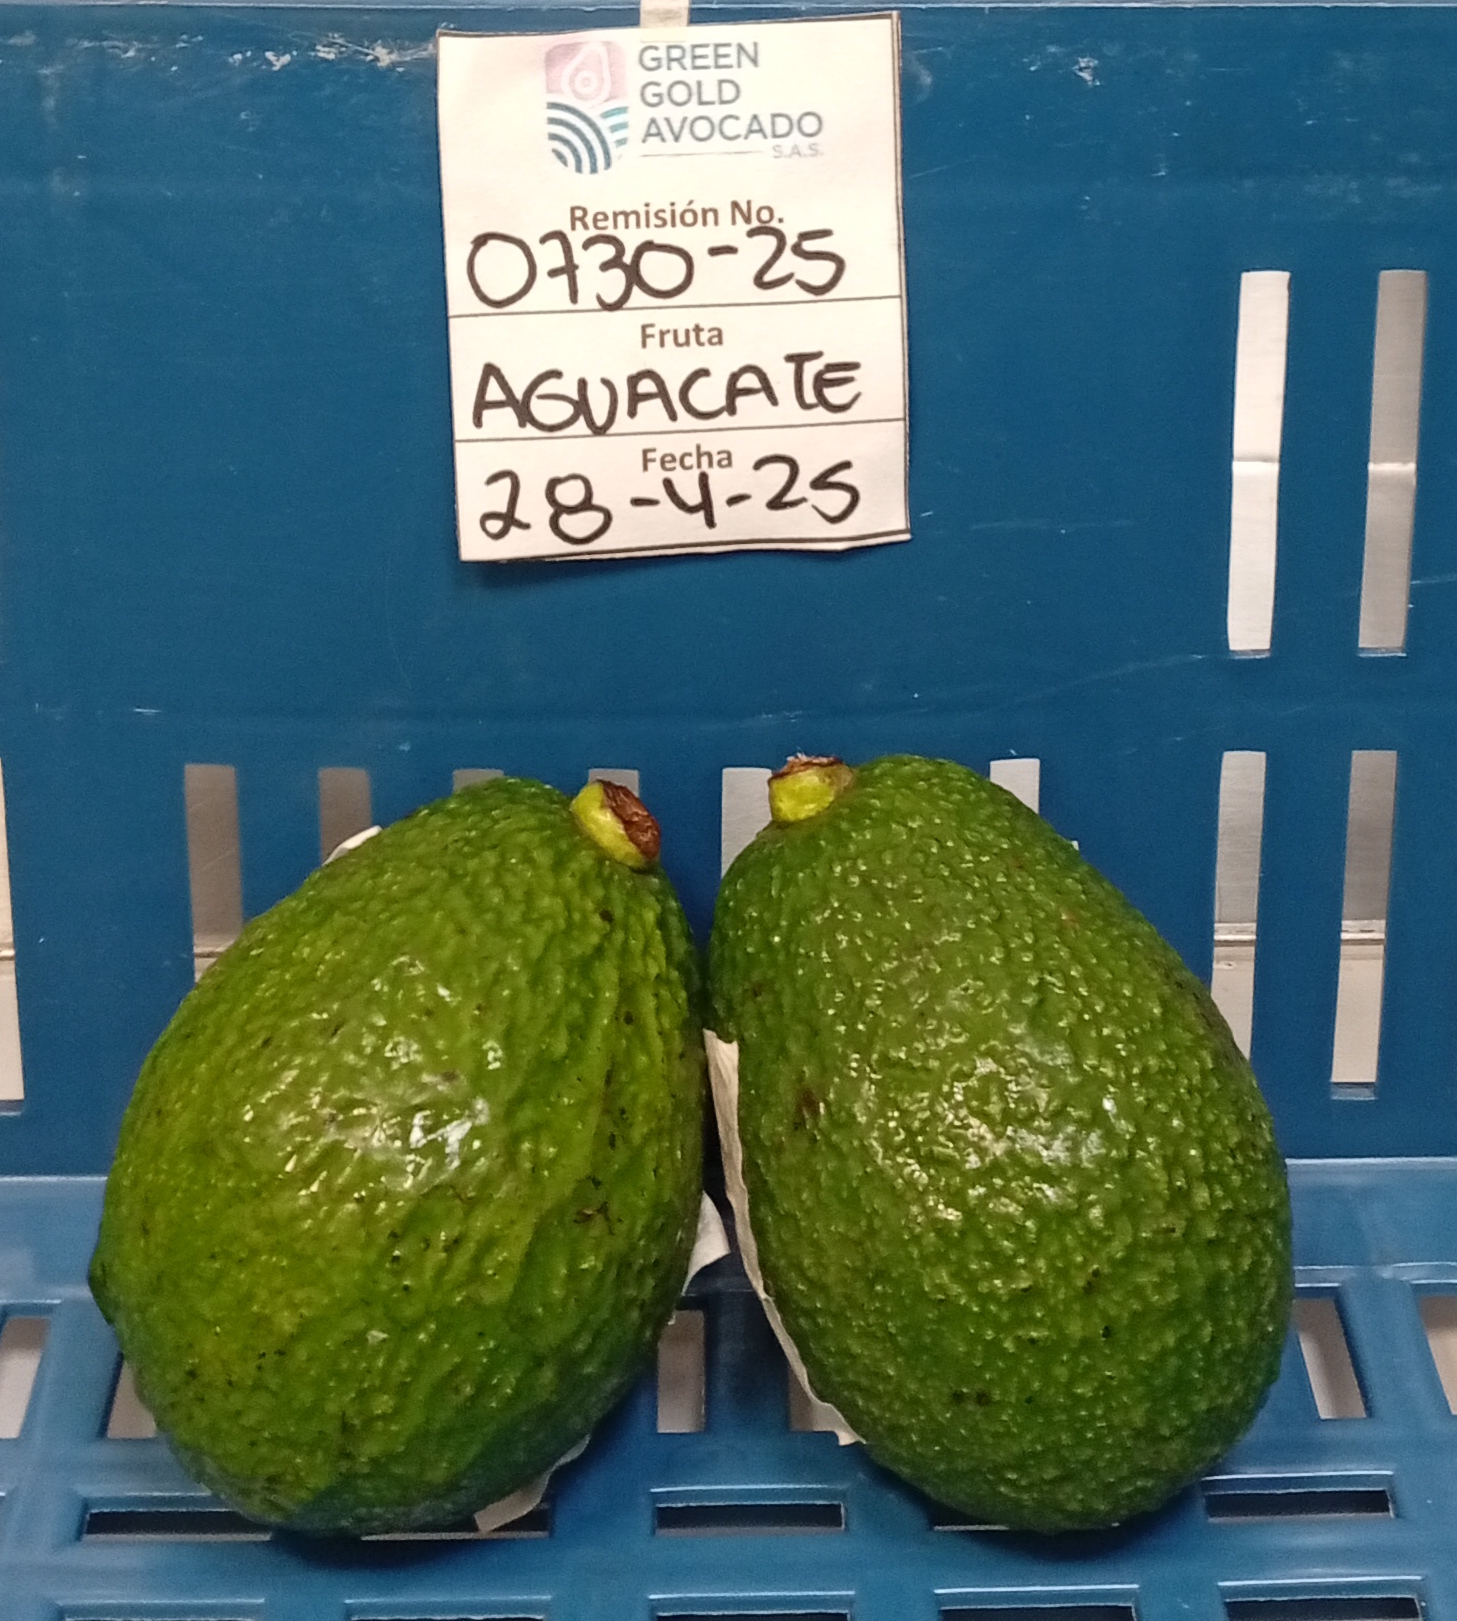 GREEN
GOLD
AVOCADO
S.A.S.
Remisión No.
0730-25
Fruta
AGUACATE
Fecha
28-4-25